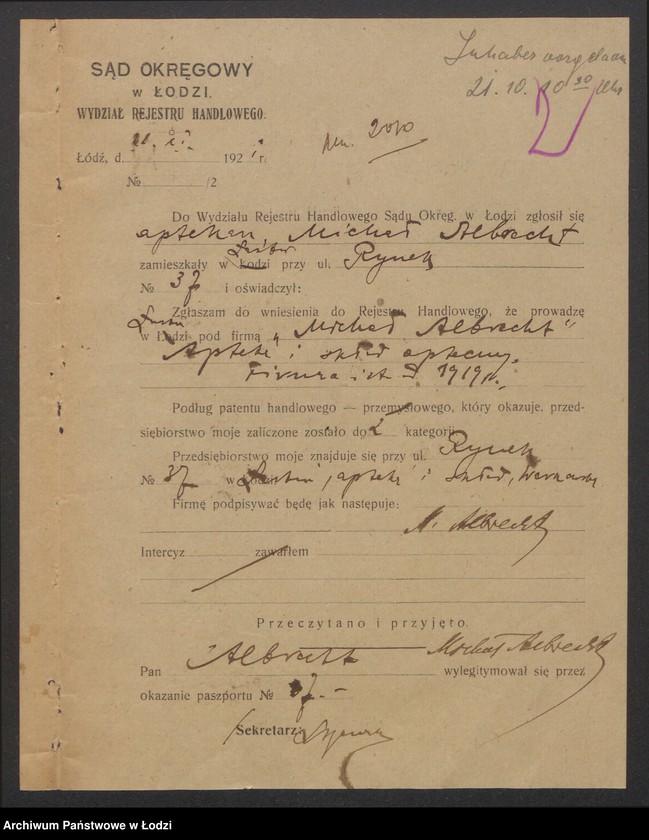 SĄD OKRĘGOWY
w ŁODZI.
WYDZIAŁ REJESTRU HANDLOWEGO.
21. 10. 10 30 Uhr
Łódź, d. 192 r.
2010
№ /2
Do Wydziału Rejestru Handlowego Sądu Okręg. w Łodzi zgłosił się
aptekarz Michał Albrecht
zamieszkały w Łodzi przy ul. Rynek
№ 37 i oświadczył:
Zgłaszam do wniesienia do Rejestru Handlowego, że prowadzę
w Łodzi pod firmą „Michał Albrecht”
Apteka i skład apteczny.
Firma ist. od 1919 r.
Podług patentu handlowego — przemysłowego, który okazuje, przed-
siębiorstwo moje zaliczone zostało do 2 kategorji
Przedsiębiorstwo moje znajduje się przy ul. Rynek
№ 37 w apteka i skład,
Firmę podpisywać będę jak następuje:
M. Albrecht
Intercyz zawarłem
Przeczytano i przyjęto.
Michał Albrecht
Pan Albrecht wylegitymował się przez
okazanie paszportu № 37. –
Sekretarz:
Archiwum Państwowe w Łodzi